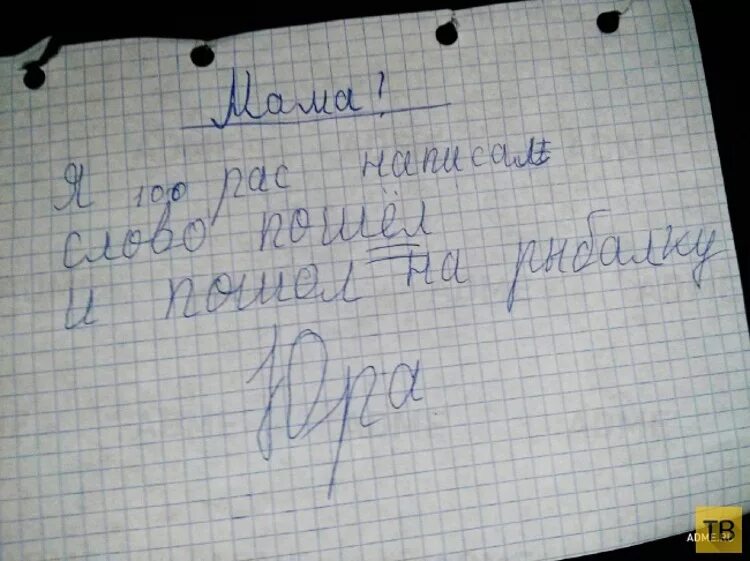 Мама!
Я 100 рас написал
слово пошёл
и пошол на рыбалку
Юра
ТВ
ADME.RU